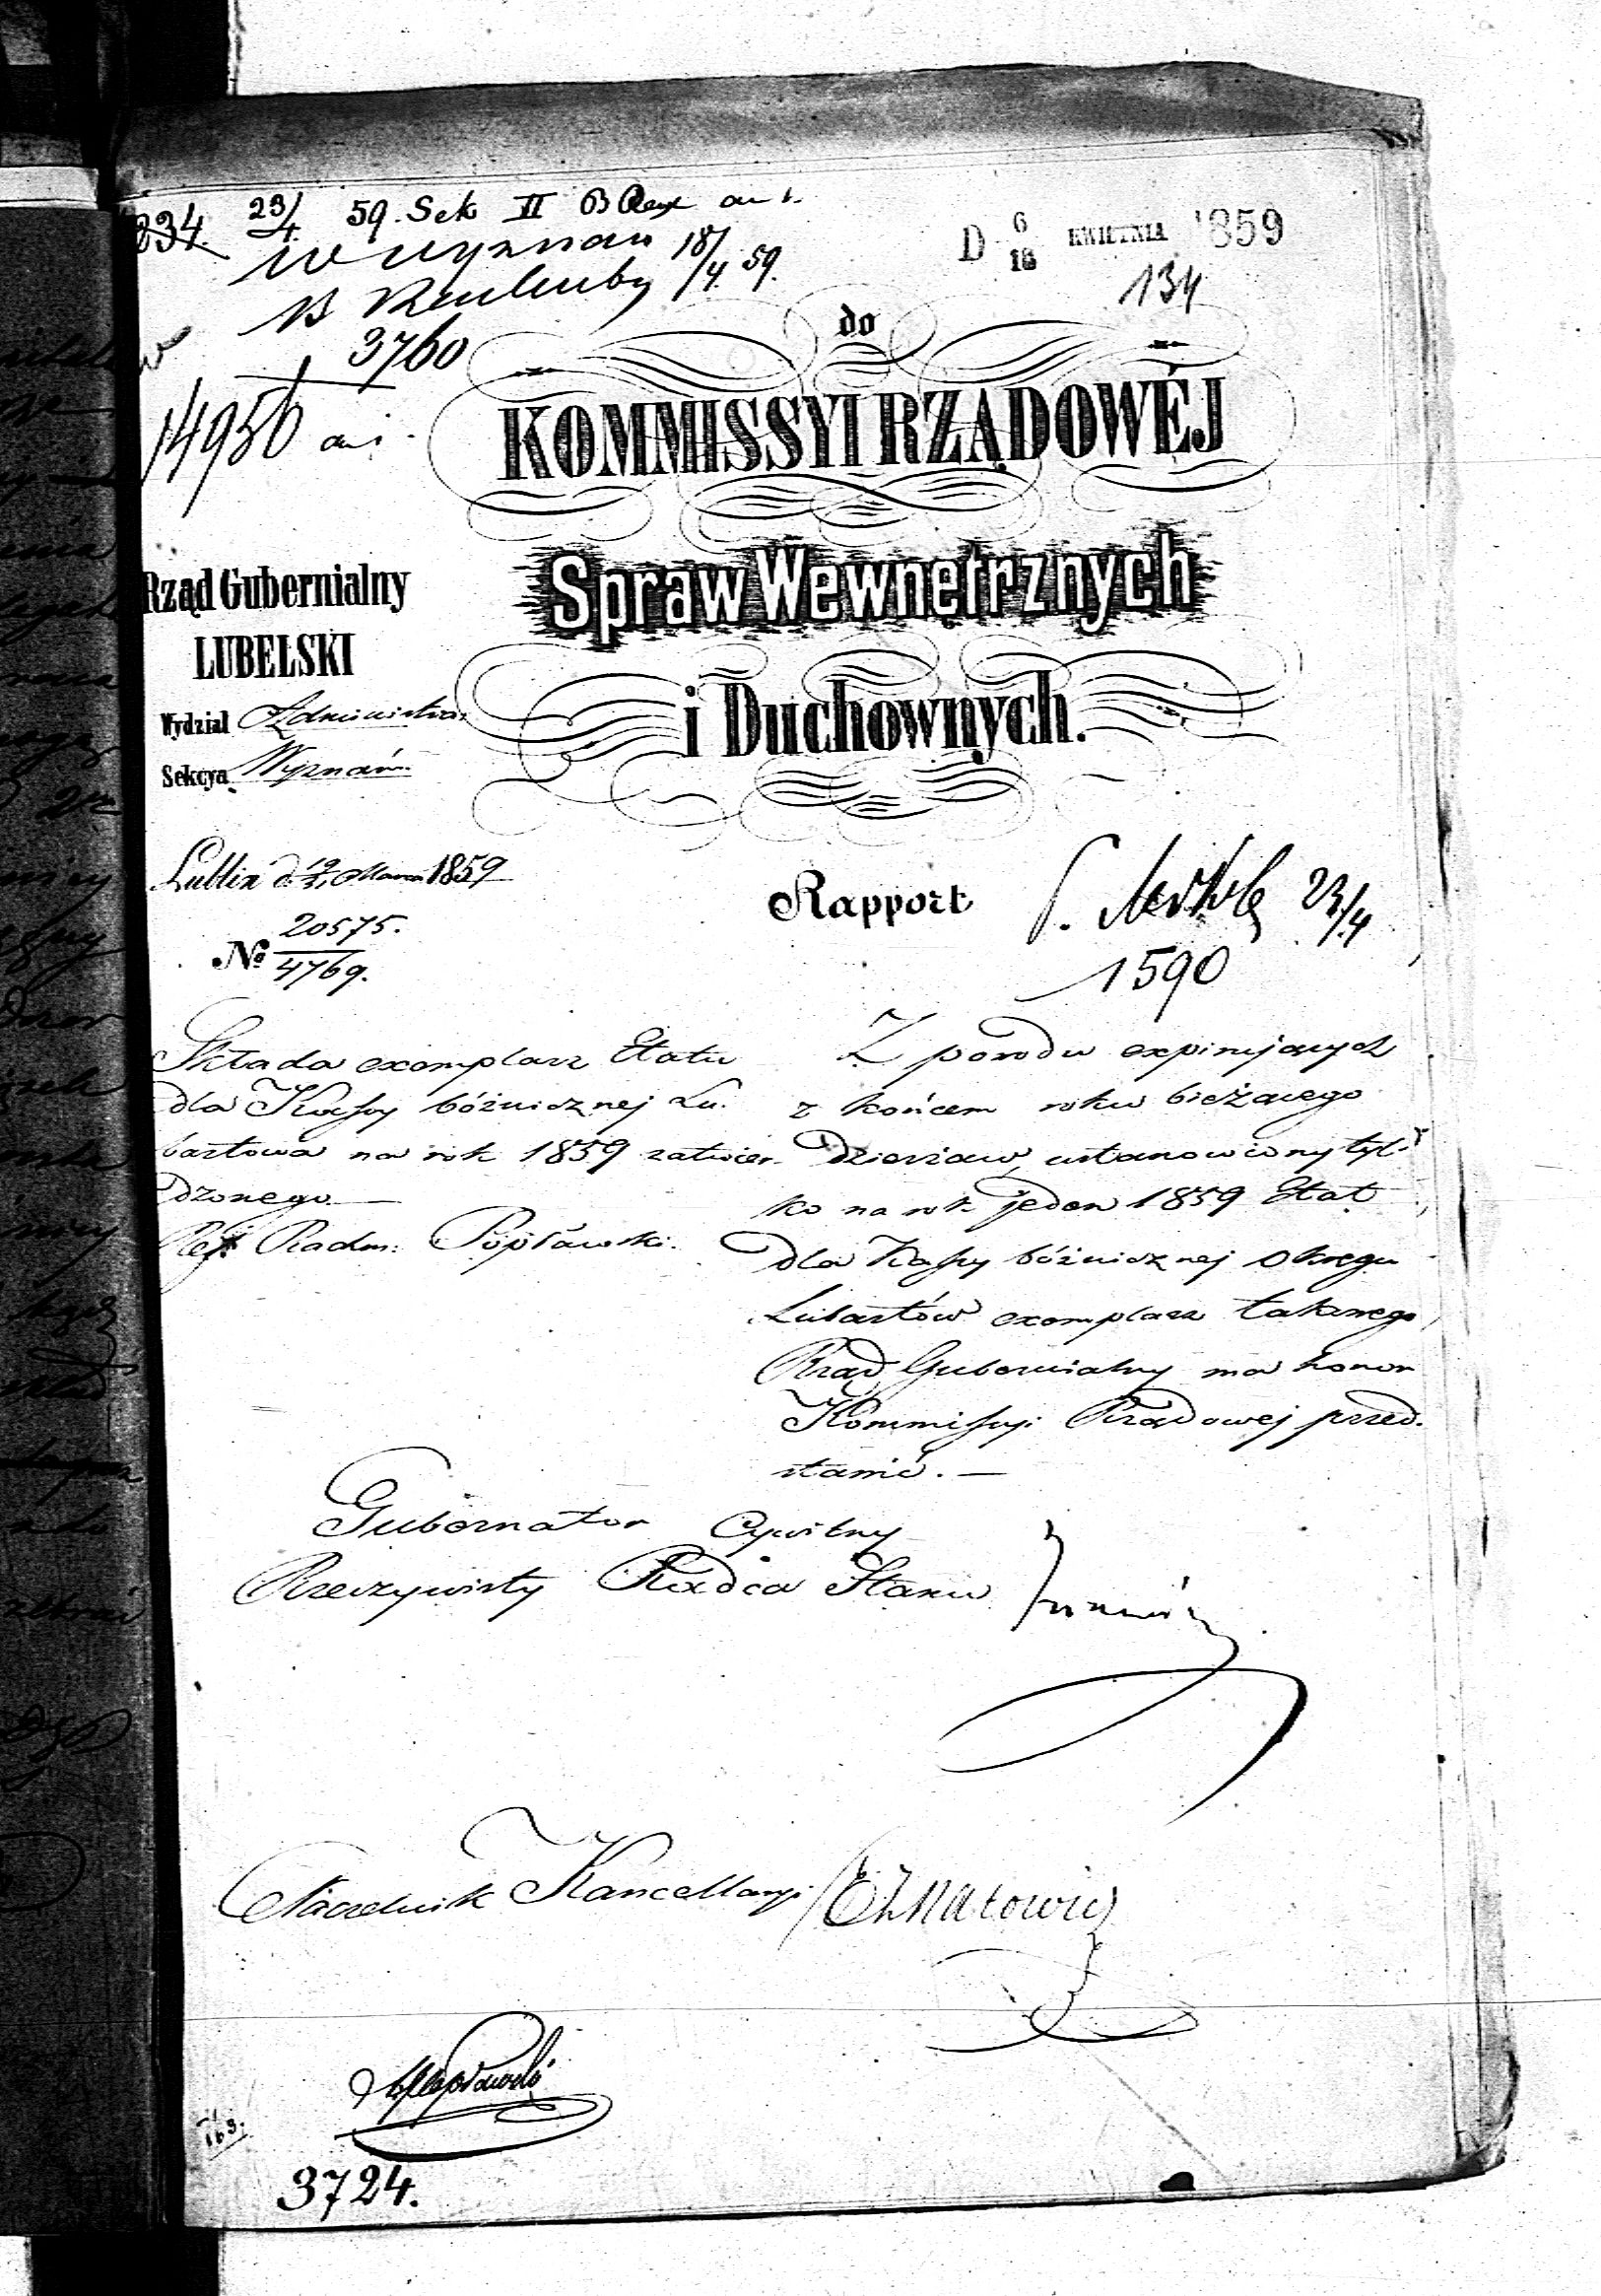 234. 23/4 59. Sek II
18/4 59.
3760
14956
D 6/18 KWIETNIA 1859
134
do
KOMMISSYI RZĄDOWÉJ
Spraw Wewnętrznych
i Duchownych.
Rząd Gubernialny
LUBELSKI
Wydział Administra:
Sekcya Wyznań.
Lublin d. 19/31 Marca 1859
№ 20575./4769.
Rapport
23/4
1590
Składa exemplarz Etatu
dla Kassy bóżnicznej Lu.
bartowa na rok 1859 zatwier.
dzonego.—
Ref. Radm: Popławski.
Z powodu expirujących
z końcem roku bieżącego
Dzierżaw, ustanowiony tyl-
ko na rok jeden 1859 Etat
dla Kassy bóżnicznej Okręgu
Lubartów exemplarz takowego
Rząd Gubernialny ma honor
Kommissyi Rządowej przed.
stawić.—
Gubernator Cywilny
Rzeczywisty Radca Stanu
Naczelnik Kancellaryi
3724.